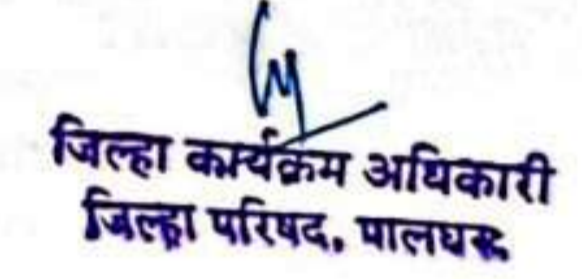 जिल्हा कार्यक्रम अधिकारी
जिल्हा परिषद, पालघर